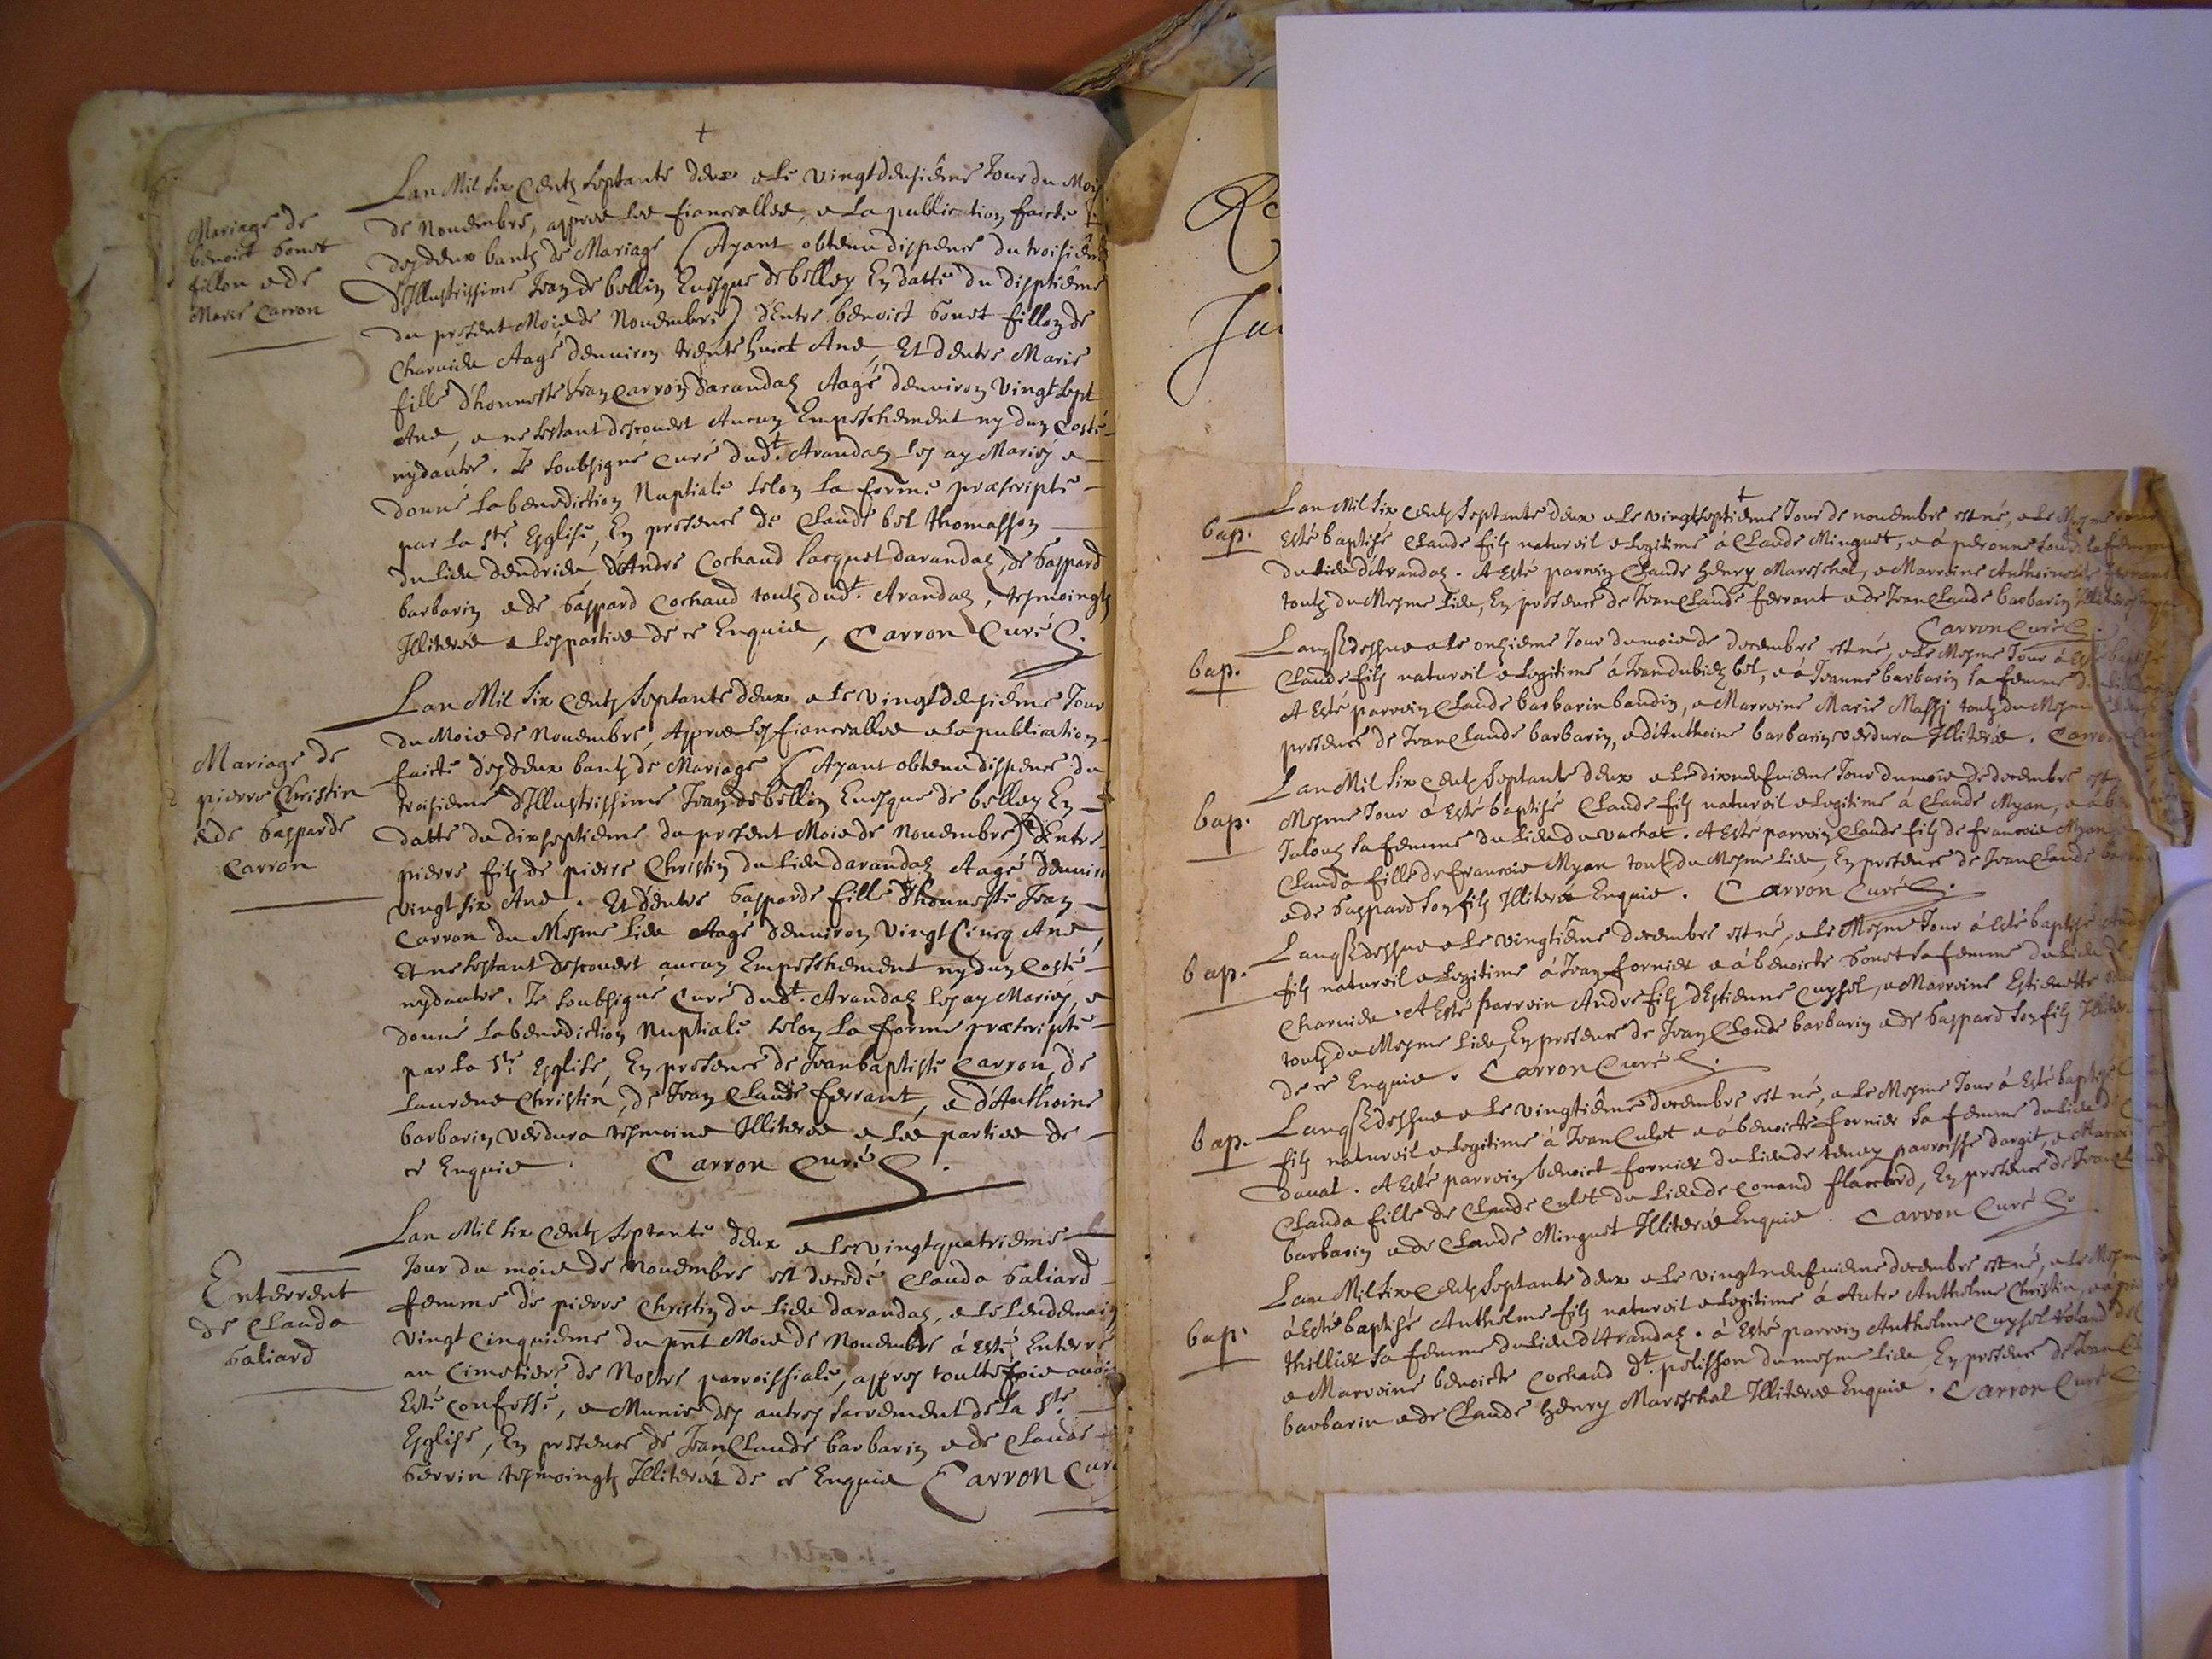 +
Mariage de
benoict bonet
fillon & de
Marie Carron
Lan Mil six centz septante deux & le vingtdeusiême Jour du Mois
de Nouembre, appres les fiancealles, & la publication faicte
des deux bantz de Mariage (Ayant obtenu dispence du troisiême
d'Illustrissime Jean de bellin Euesque de belley En datte du
du present Mois de Nouembre) d'Entre benoict bonet fillon de
Charuieu Aagé d'enuiron trente huict Ans, Et d'entre Marie
fille d'honneste Jean Carron darandaz Aagé d'enuiron vingt sept
Ans, & ne sestant descouuert Aucun Empeschement ny dun Costé
ny dautre. Je soubsigné curé dudt. Arandaz les ay Mariéz &
donné la benediction Nuptiale selon la forme præscripte
par la Ste. Esglise, En presence de Claude bel thomasson
du lieu dendrieu, d'André Cochand Jacquet darandaz, de Gaspard
barbarin & de Gaspard Cochand toutz dudt. Arandaz, tesmoingtz
Illiteréz & les parties de ce Enquis, Carron Curé
Mariage de
pierre Christin
& de Gasparde
Carron
Lan Mil Six Centz Septante deux & le vingtdeusiême Jour
du Mois de Nouembre, Appres les fiancealles & la publication
faicte des deux bantz de Mariage (Ayant obtenu dispence du
troisieme d'Illustrissime Jean de bellin Euesque de belley En
datte du dixseptieme du present Mois de Nouembre) d'Entre
pierre filz de pierre Christin du lieu darandaz Aagé d'enuiron
vingt six Ans. Et d'entre Gasparde fille d'honneste Jean
Carron du Mesme lieu Aagé d'enuiron vingt Cincq Ans,
Et ne sestant descouuert aucun Empeschement ny dun Costé
ny dautre. Je soubsigné Curé dudt. Arandaz les ay Mariéz, &
donné la benediction Nuptiale selon la forme præscripte
par la Ste. Esglise, En presence de Jeanbaptiste Carron, de
Laurens Christin, de Jean Claude ferrant, & d'Anthoine
barbarin verdura tesmoins Illiteréz & les parties de
ce Enquis. Carron Curé
Enterrent
de Clauda
Galiard
Lan Mil six Centz Septante deux & le vingtquatrieme
Jour du mois de Nouembre est decedé Clauda Galiard
femme de pierre Christin du lieu darandaz, & le lendemain
vingt cinquieme du pnt Mois de Nouembre á esté Enterré
au Cimetiere de Nostre parroissiale, appres touttefois auoir
Esté confessé, & Munie des autres sacrement de la Ste.
Esglise, En presence de Jean Claude barbarin & de Claude
Gerrin tesmoingtz Illiteréz de ce Enquis Carron Curé
+
bap. Lan Mil Six Centz Septante deux & le vingtseptieme Jour de nouembre est né, & le Mesme Jour
Esté baptisé Claude filz naturel & legitime á Claude Minguet, & á peronne sa femme
du lieu d'Arandaz. A Esté parrein Claude henry Mareschal, & Marreine Anthoinette ferrant
toutz du Mesme lieu, En presence de Jean Claude ferrant & de Jean Claude barbarin
Carron Curé
bap. Lan susdessus & le onzieme Jour du mois de decembre est né, & le Mesme Jour á Esté baptisé
Claude filz naturel & legitime á Jean dubiez bel, & á Jeanne barbarin sa femme
A Esté parrein Claude barbarin bandin, & Marreine Marie Massy toutz du Mesme
presence de Jean Claude barbarin, & d'Anthoine barbarin verdura Illiteréz. Carron Curé
bap. Lan Mil Six Centz Septante deux & le dixneufuieme Jour du mois de decembre est
Mesme Jour á Esté baptisé Claude filz naturel & legitime á Claude Myan, & á
sa femme du lieu du vachat. A Esté parrein Claude filz de francois Myan
Clauda fille de francois Myan toutz du Mesme lieu, En presence de Jean Claude
& de Gaspard son filz Illiteréz Enquis. Carron Curé
bap. Lan susdessus & le vingtiême decembre est né, & le Mesme Jour á Esté baptisé
filz naturel & legitime á Jean fornier & á benoicte bonet sa femme du lieu de
Charuieu. A Esté parrein André filz d'Estienne Cuysel, & Marreine Estienette
toutz du Mesme lieu, En presence de Jean Claude barbarin & de Gaspard son filz
de ce Enquis. Carron Curé
bap. Lan susdessus & le vingtiême decembre est né, & le Mesme Jour á Esté baptisé
filz naturel & legitime á Jean Culet & á benoicte fornier sa femme du lieu d
daual. A Esté parrein benoict fornier du lieu de tenay parroisse dargit, &
Clauda fille de Claude Culet du lieu de Conand, En presence de Jean
barbarin & de Claude Minguet Illiteréz Enquis. Carron Curé
bap. Lan Mil Six Centz Septante deux & le vingtneufuieme decembre est né, & le Mesme
á Esté baptisé Anthelme filz naturel & legitime á Autre Anthelme Christin, &
thillier sa femme du lieu d'Arandaz. á Esté parrein Anthelme Cuysel
& Marreine benoicte Cochand dt. pelisson du mesme lieu, En presence de Jean
barbarin & de Claude henry Mareschal Illiteréz Enquis. Carron Curé